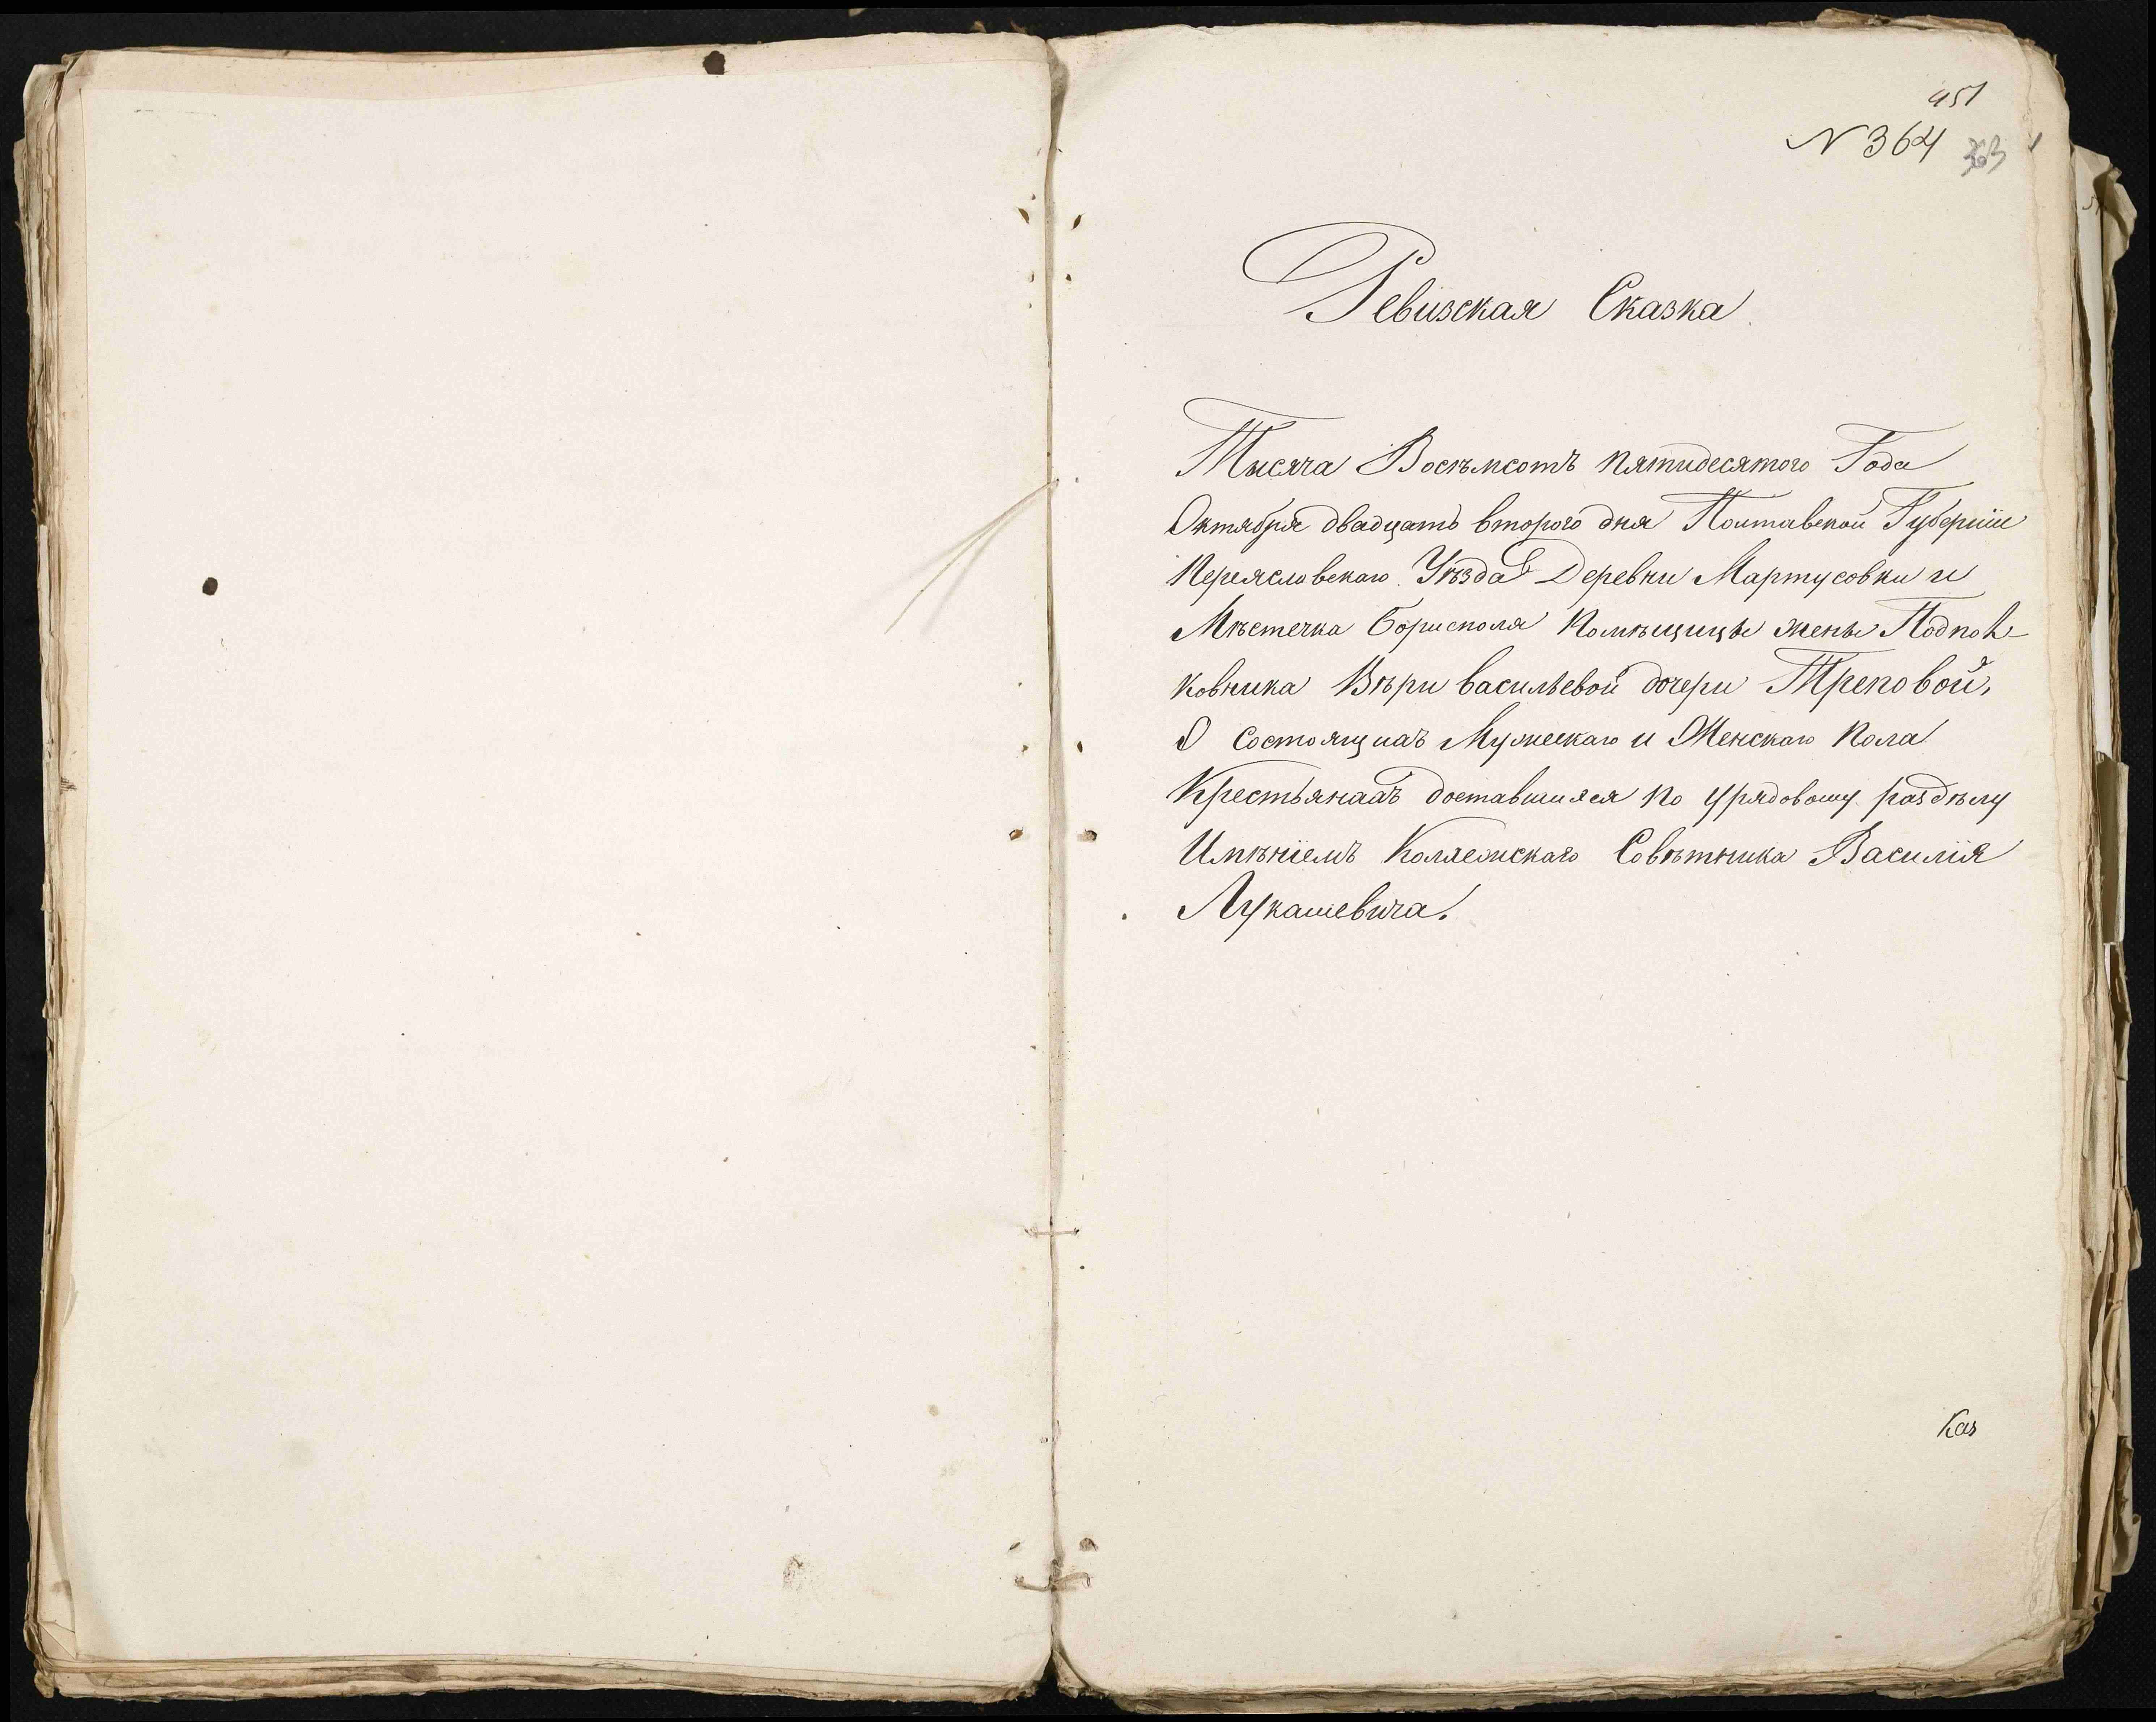 451
N 364 363
Ревизская Сказка
Тысяча Восѣмсотъ пятидесятого Года
Октября двадцать второго дня Полтавской Губерніи
Переясловскаго Уѣзда Деревни Мартусовки и
Мѣстечка Борисполя Помѣщицы жены Подпол-
ковника Вѣри васильевой дочери Треповой,
О состоящихъ Мужескаго и Женскаго пола
Крестьянахъ доставшихся по урядовому раздѣлу
Имѣніемъ Коллежскаго Совѣтника Василія
Лукашевича.